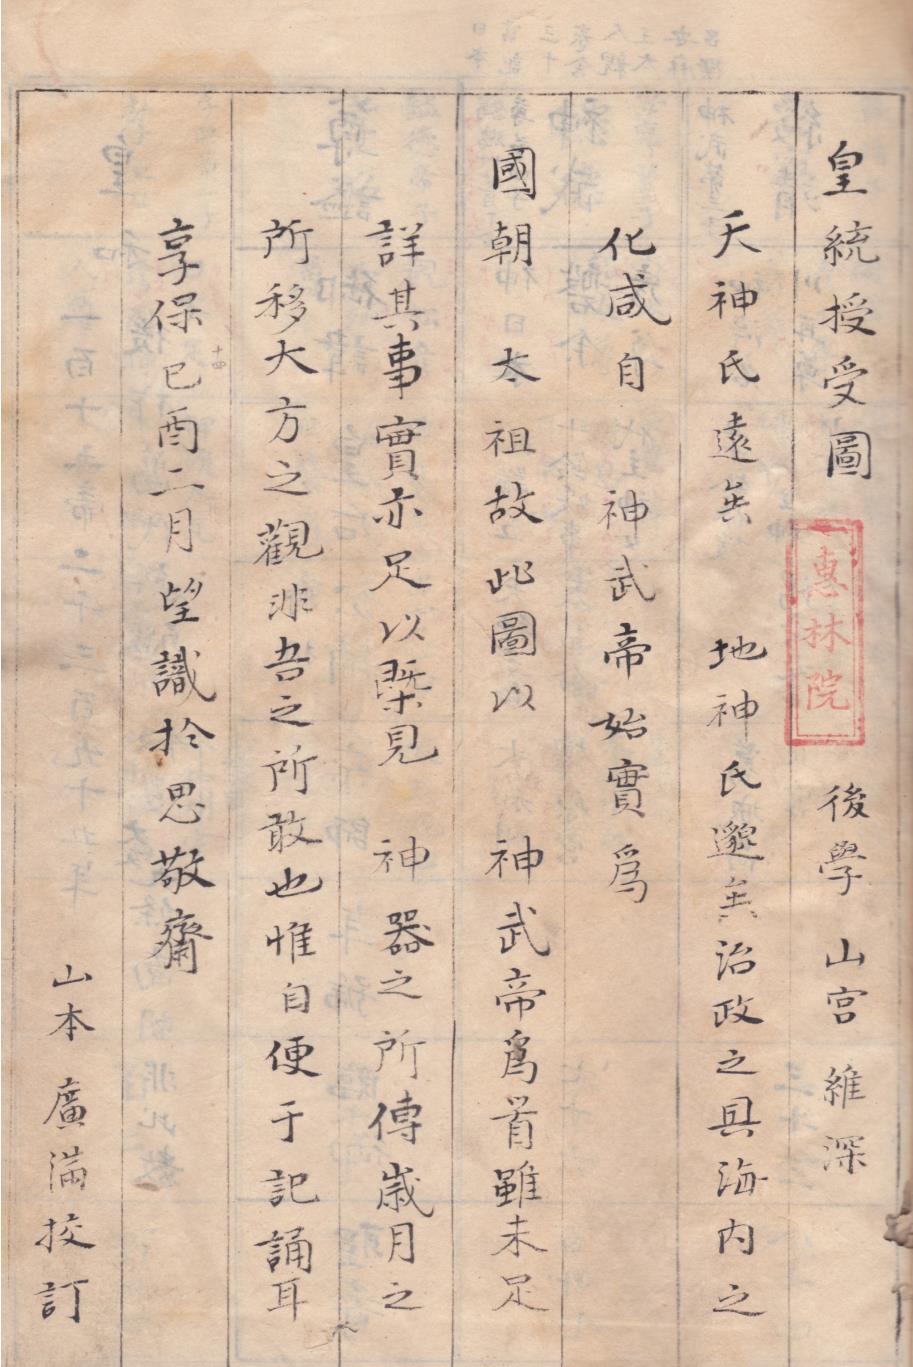 皇統授受圖 後學 山宮 維深
惠林院
天神氏遠矣 地神氏邈矣治政之具海内之
化咸自 神武帝始實爲
國朝太祖故此圖以 神武帝爲首雖未足
詳其事實亦足以槩見 神器之所傳歳月之
所移大方之觀非吾之所敢也惟自便于記誦耳
享保己酉二月望識於思敬齋
十四
山本廣滿挍訂